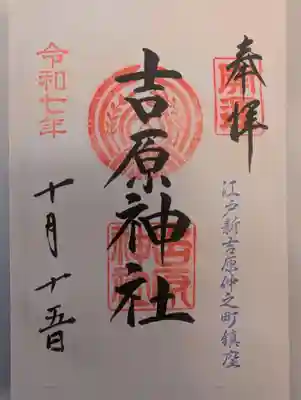 奉拝
江戸新吉原仲之町鎮座
吉原神社
令和七年
十月十五日